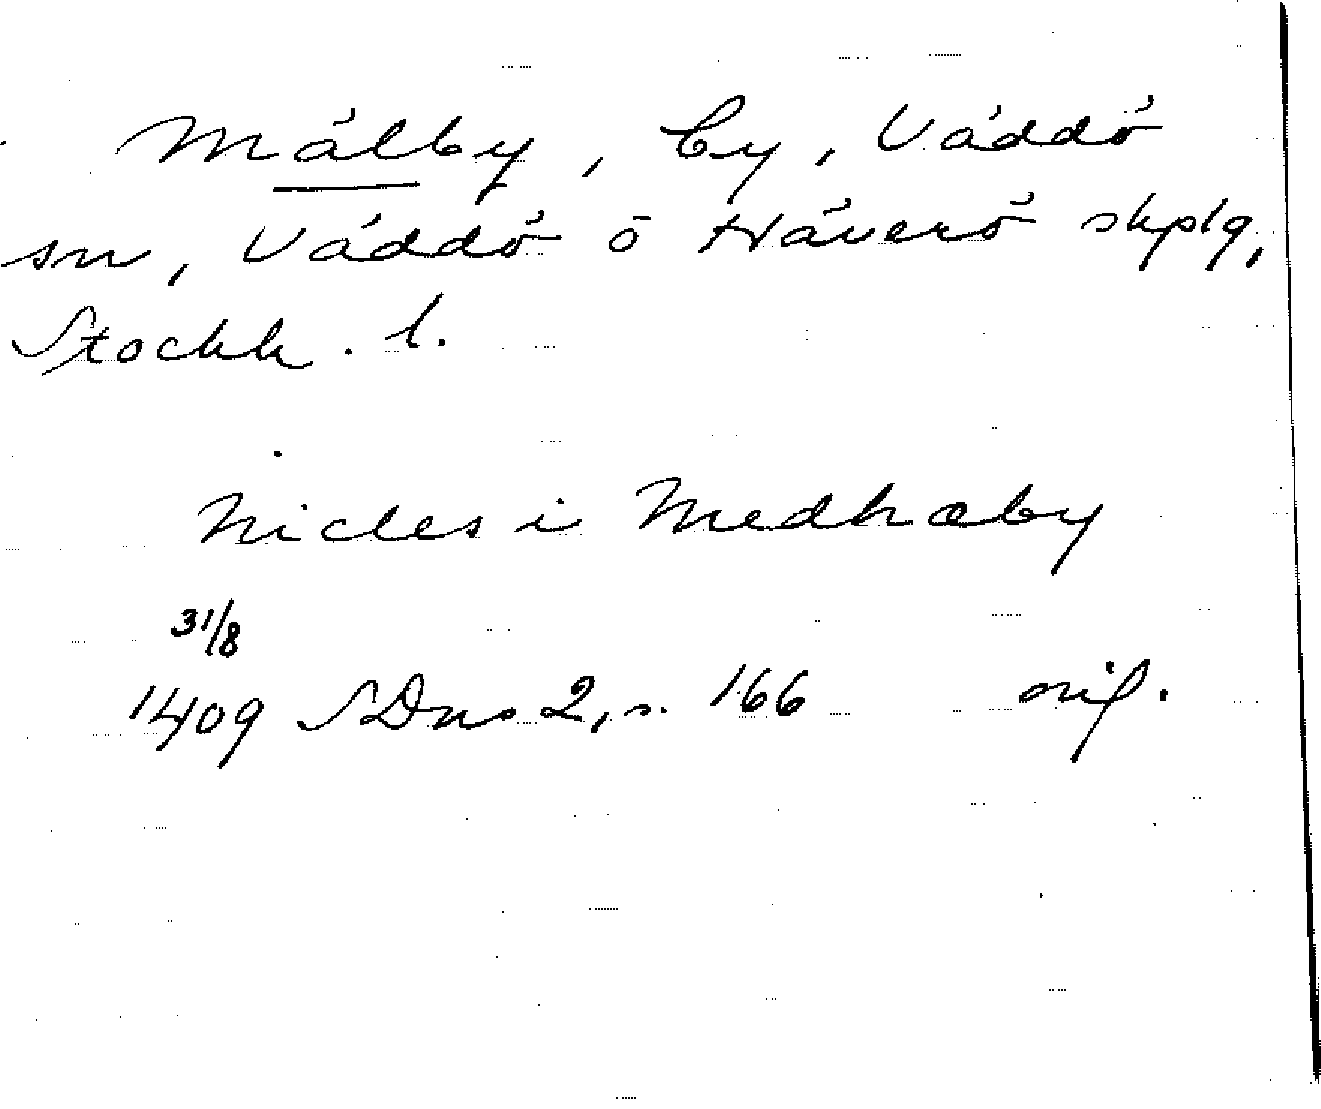 Mälby, by, Väddö
sn, Väddö o Häverö skplg,
Stockh. l.
Nicles i Medhæby
31/8
1409 SDns 2, s. 166 orig.